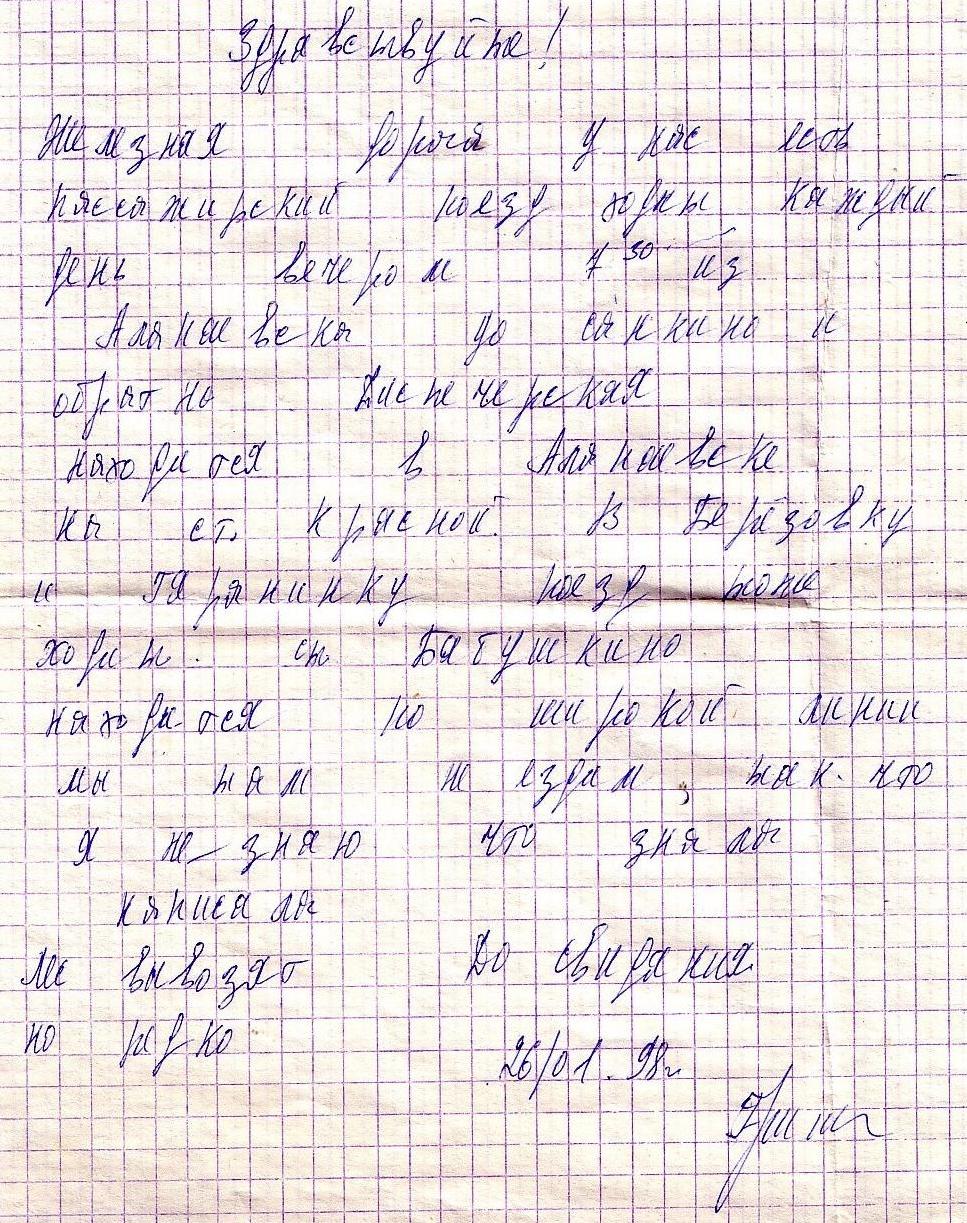 Здравствуйте!
Железная дорога у нас есть
пассажирский поезд ходит каждый
день вечером 7 30 из
Алапаевска до Санкино и
обратно Диспечерская
находится в Алапаевске
на ст. Красной. В Берёзовку
и Таранинку поезд тоже
ходит. ст Бабушкино
находится по широкой линии
мы там не ездим, так что
я не знаю что знала
написала
лес вывозят До свидания
но редко
26/01.98г